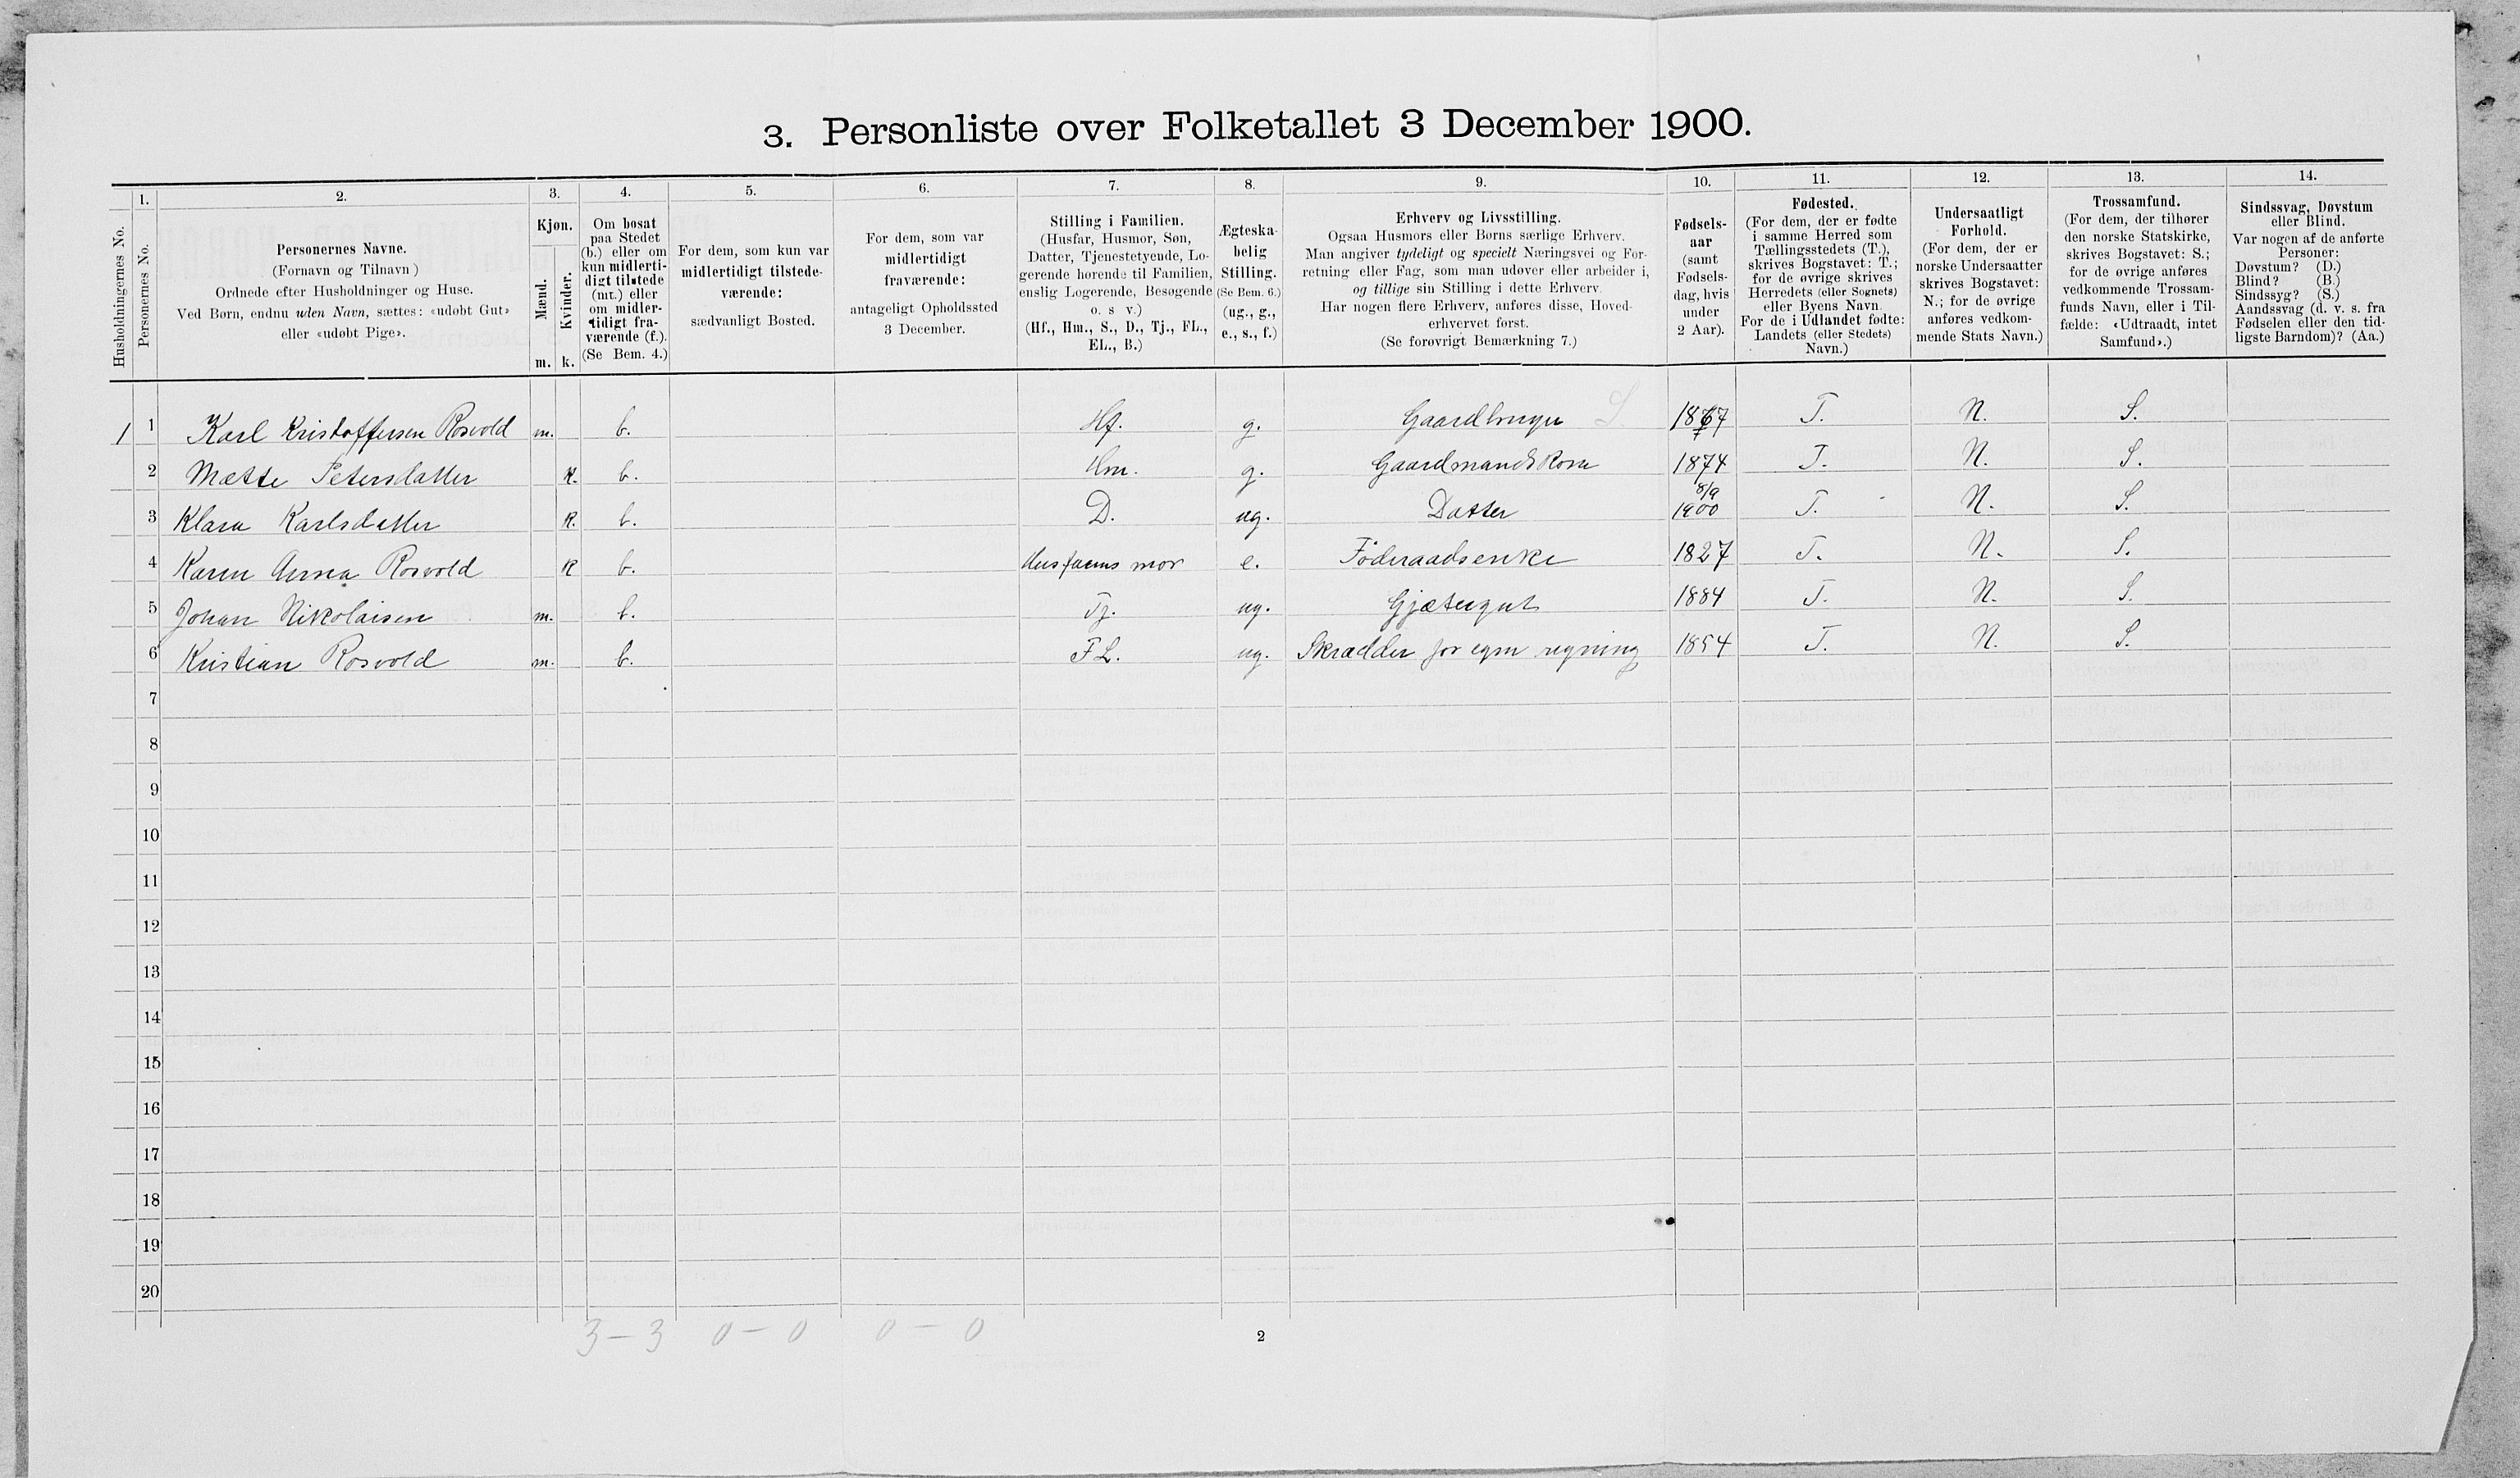 3. Personliste over Folketallet 3 December 1900.
Husholdningernes No.
1.
Personernes No.
2.
Personernes Navne.
(Fornavn og Tilnavn)
Ordnede efter Husholdninger og Huse.
Ved Børn, endnu uden Navn, sættes: «udøbt Gut»
eller «udøbt Pige».
3.
Kjøn.
Mænd.
Kvinder.
m. k.
4.
Om bosat
paa Stedet
(b.) eller om
kun midlerti-
digt tilstede
(mt.) eller
om midler-
tidigt fra-
værende (f.).
(Se Bem. 4.)
5.
For dem, som kun var
midlertidigt tilstede-
værende:
sædvanligt Bosted.
6.
For dem, som var
midlertidigt
fraværende:
antageligt Opholdssted
3 December.
7.
Stilling i Familien.
(Husfar, Husmor, Søn,
Datter, Tjenestetyende, Lo-
gerende hørende til Familien,
enslig Logerende, Besøgende
o. s v.)
(Hf., Hm., S., D., Tj., FL.,
EL., B.)
8.
Ægteska-
belig
Stilling.
(Se Bem. 6.)
(ug., g.,
e., s., f.)
9.
Erhverv og Livsstilling.
Ogsaa Husmors eller Børns særlige Erhverv.
Man angiver tydeligt og specielt Næringsvei og For-
retning eller Fag, som man udøver eller arbeider i,
og tillige sin Stilling i dette Erhverv.
Har nogen flere Erhverv, anføres disse, Hoved-
erhvervet først.
(Se forøvrigt Bemærkning 7.)
10.
Fødsels-
aar
(samt
Fødsels-
dag, hvis
under
2 Aar).
11.
Fødested.
(For dem, der er fødte
i samme Herred som
Tællingsstedets (T.),
skrives Bogstavet: T.;
for de øvrige skrives
Herredets (eller Sognets)
eller Byens Navn
For de i Udlandet fødte:
Landets (eller Stedets)
Navn.)
12.
Undersaatligt
Forhold.
(For dem, der er
norske Undersaatter
skrives Bogstavet:
N.; for de øvrige
anføres vedkom-
mende Stats Navn.)
13.
Trossamfund.
(For dem, der tilhører
den norske Statskirke,
skrives Bogstavet: S.;
for de øvrige anføres
vedkommende Trossam-
funds Navn, eller i Til-
fælde: «Udtraadt, intet
Samfund».)
14.
Sindssvag, Døvstum
eller Blind.
Var nogen af de anførte
Personer:
Døvstum? (D.)
Blind? (B.)
Sindssyg? (S.)
Aandssvag (d. v. s. fra
Fødselen eller den tid-
ligste Barndom)? (Aa.)
1 1 Karl Kristoffersen Rosvold m. b. Hf. g. Gaardbruger S. 1867 T. N. S.
2 Mætte Petersdatter k. b. Hm. g. Gaardmandskone 1874 T. N. S.
3 Klara Karlsdatter k. b. D. ug. Datter 8/9 1900 T. N. S.
4 Karen Anna Rosvold k b. Husfaers mor e. Föderaadsenke 1827 T. N. S.
5 Johan Nikolaisen m. b. Tj. ug. Gjætergut 1884 T. N. S.
6 Kristian Rosvold m. b. FL. ug. Skrædder for egen regning 1854 T. N. S.
7
8
9
10
11
12
13
14
15
16
17
18
19
20
3 – 3 0 – 0 0 – 0
2